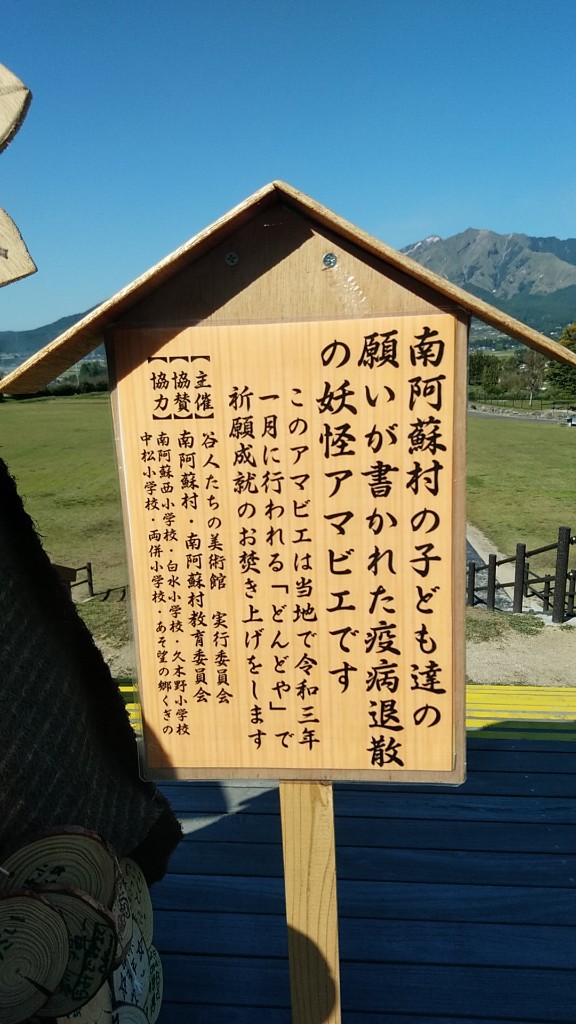 南阿蘇村の子ども達の
願いが書かれた疫病退散
の妖怪アマビエです
このアマビエは当地で令和三年
一月に行われる「どんどや」で
祈願成就のお焚き上げをします
【主催】谷人たちの美術館 実行委員会
【協賛】南阿蘇村・南阿蘇村教育委員会
【協力】南阿蘇西小学校・白水小学校・久木野小学校
中松小学校・両併小学校・あそ望の郷くぎの